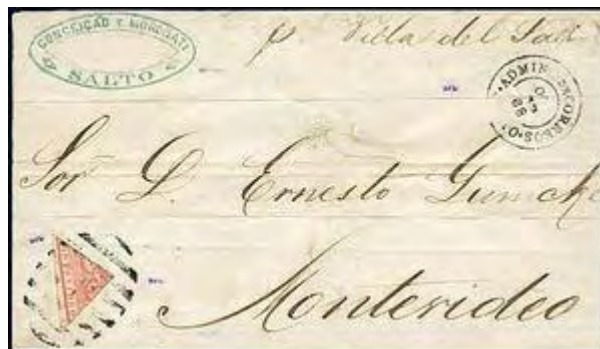 CONCEIÇAO Y
SALTO
p. Villa del Salto
ADMIN. DE CORREOS
Sor D. Ernesto
Montevideo